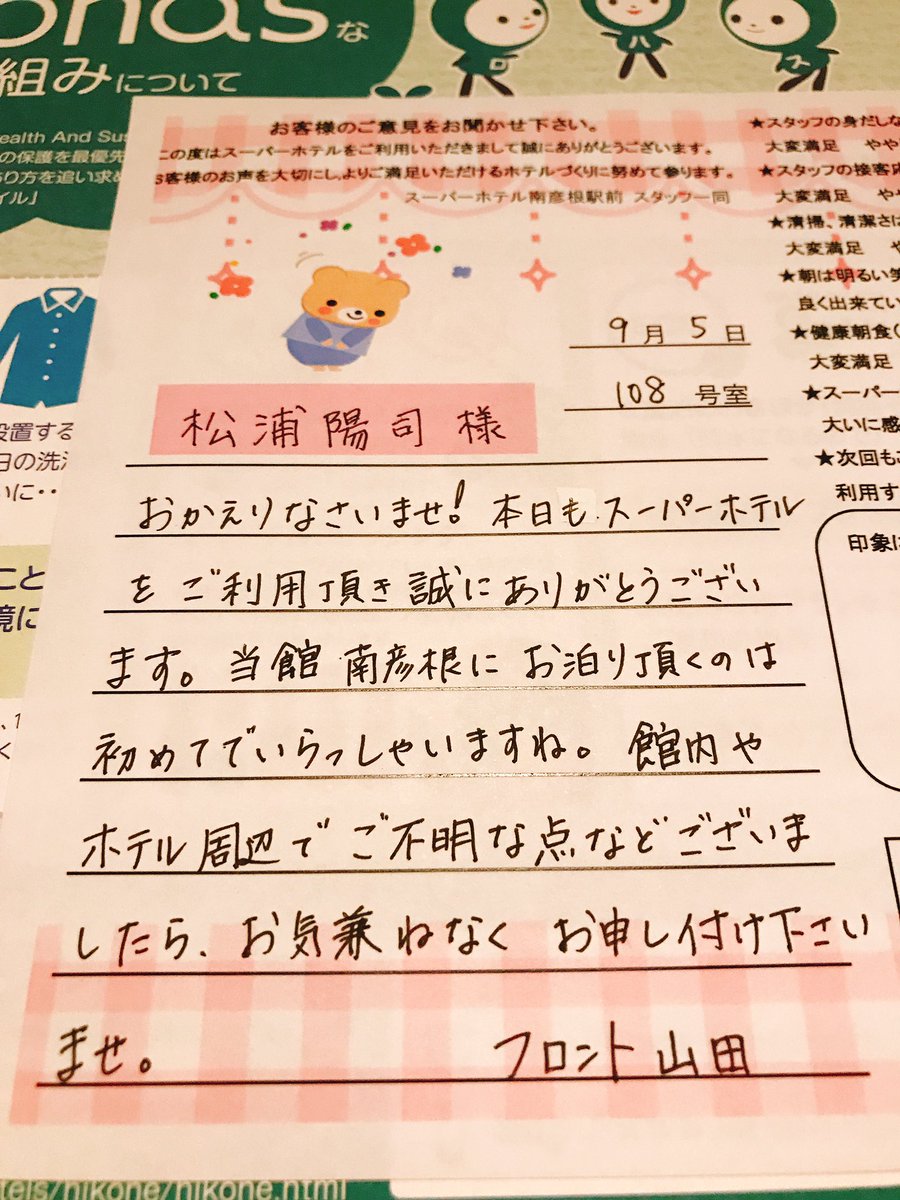 onasな
組みについて
ealth And Sus
の保護を最優先
り方を追い求め
イル」
ロ
ハ
ス
お客様のご意見をお聞かせ下さい。
この度はスーパーホテルをご利用いただきまして誠にありがとうございます。
お客様のお声を大切にし、よりご満足いただけるホテルづくりに努めて参ります。
スーパーホテル南彦根駅前 スタッフ一同
9月5日
108号室
松浦陽司様
おかえりなさいませ!本日もスーパーホテル
をご利用頂き誠にありがとうござい
ます。当館 南彦根にお泊り頂くのは
初めてでいらっしゃいますね。館内や
ホテル周辺でご不明な点などございま
したら、お気兼ねなくお申し付け下さい
ませ。 フロント山田
★スタッフの身だしな
大変満足 やや
★スタッフの接客応
大変満足 やや
★清掃、清潔さは
大変満足 や
★朝は明るい笑
良く出来てい
★健康朝食(
大変満足
★スーパー
大いに感
★次回もご
利用す
印象に
設置する
日の洗濯
いに・・
こと
境に
tels/hikone/hikone.html